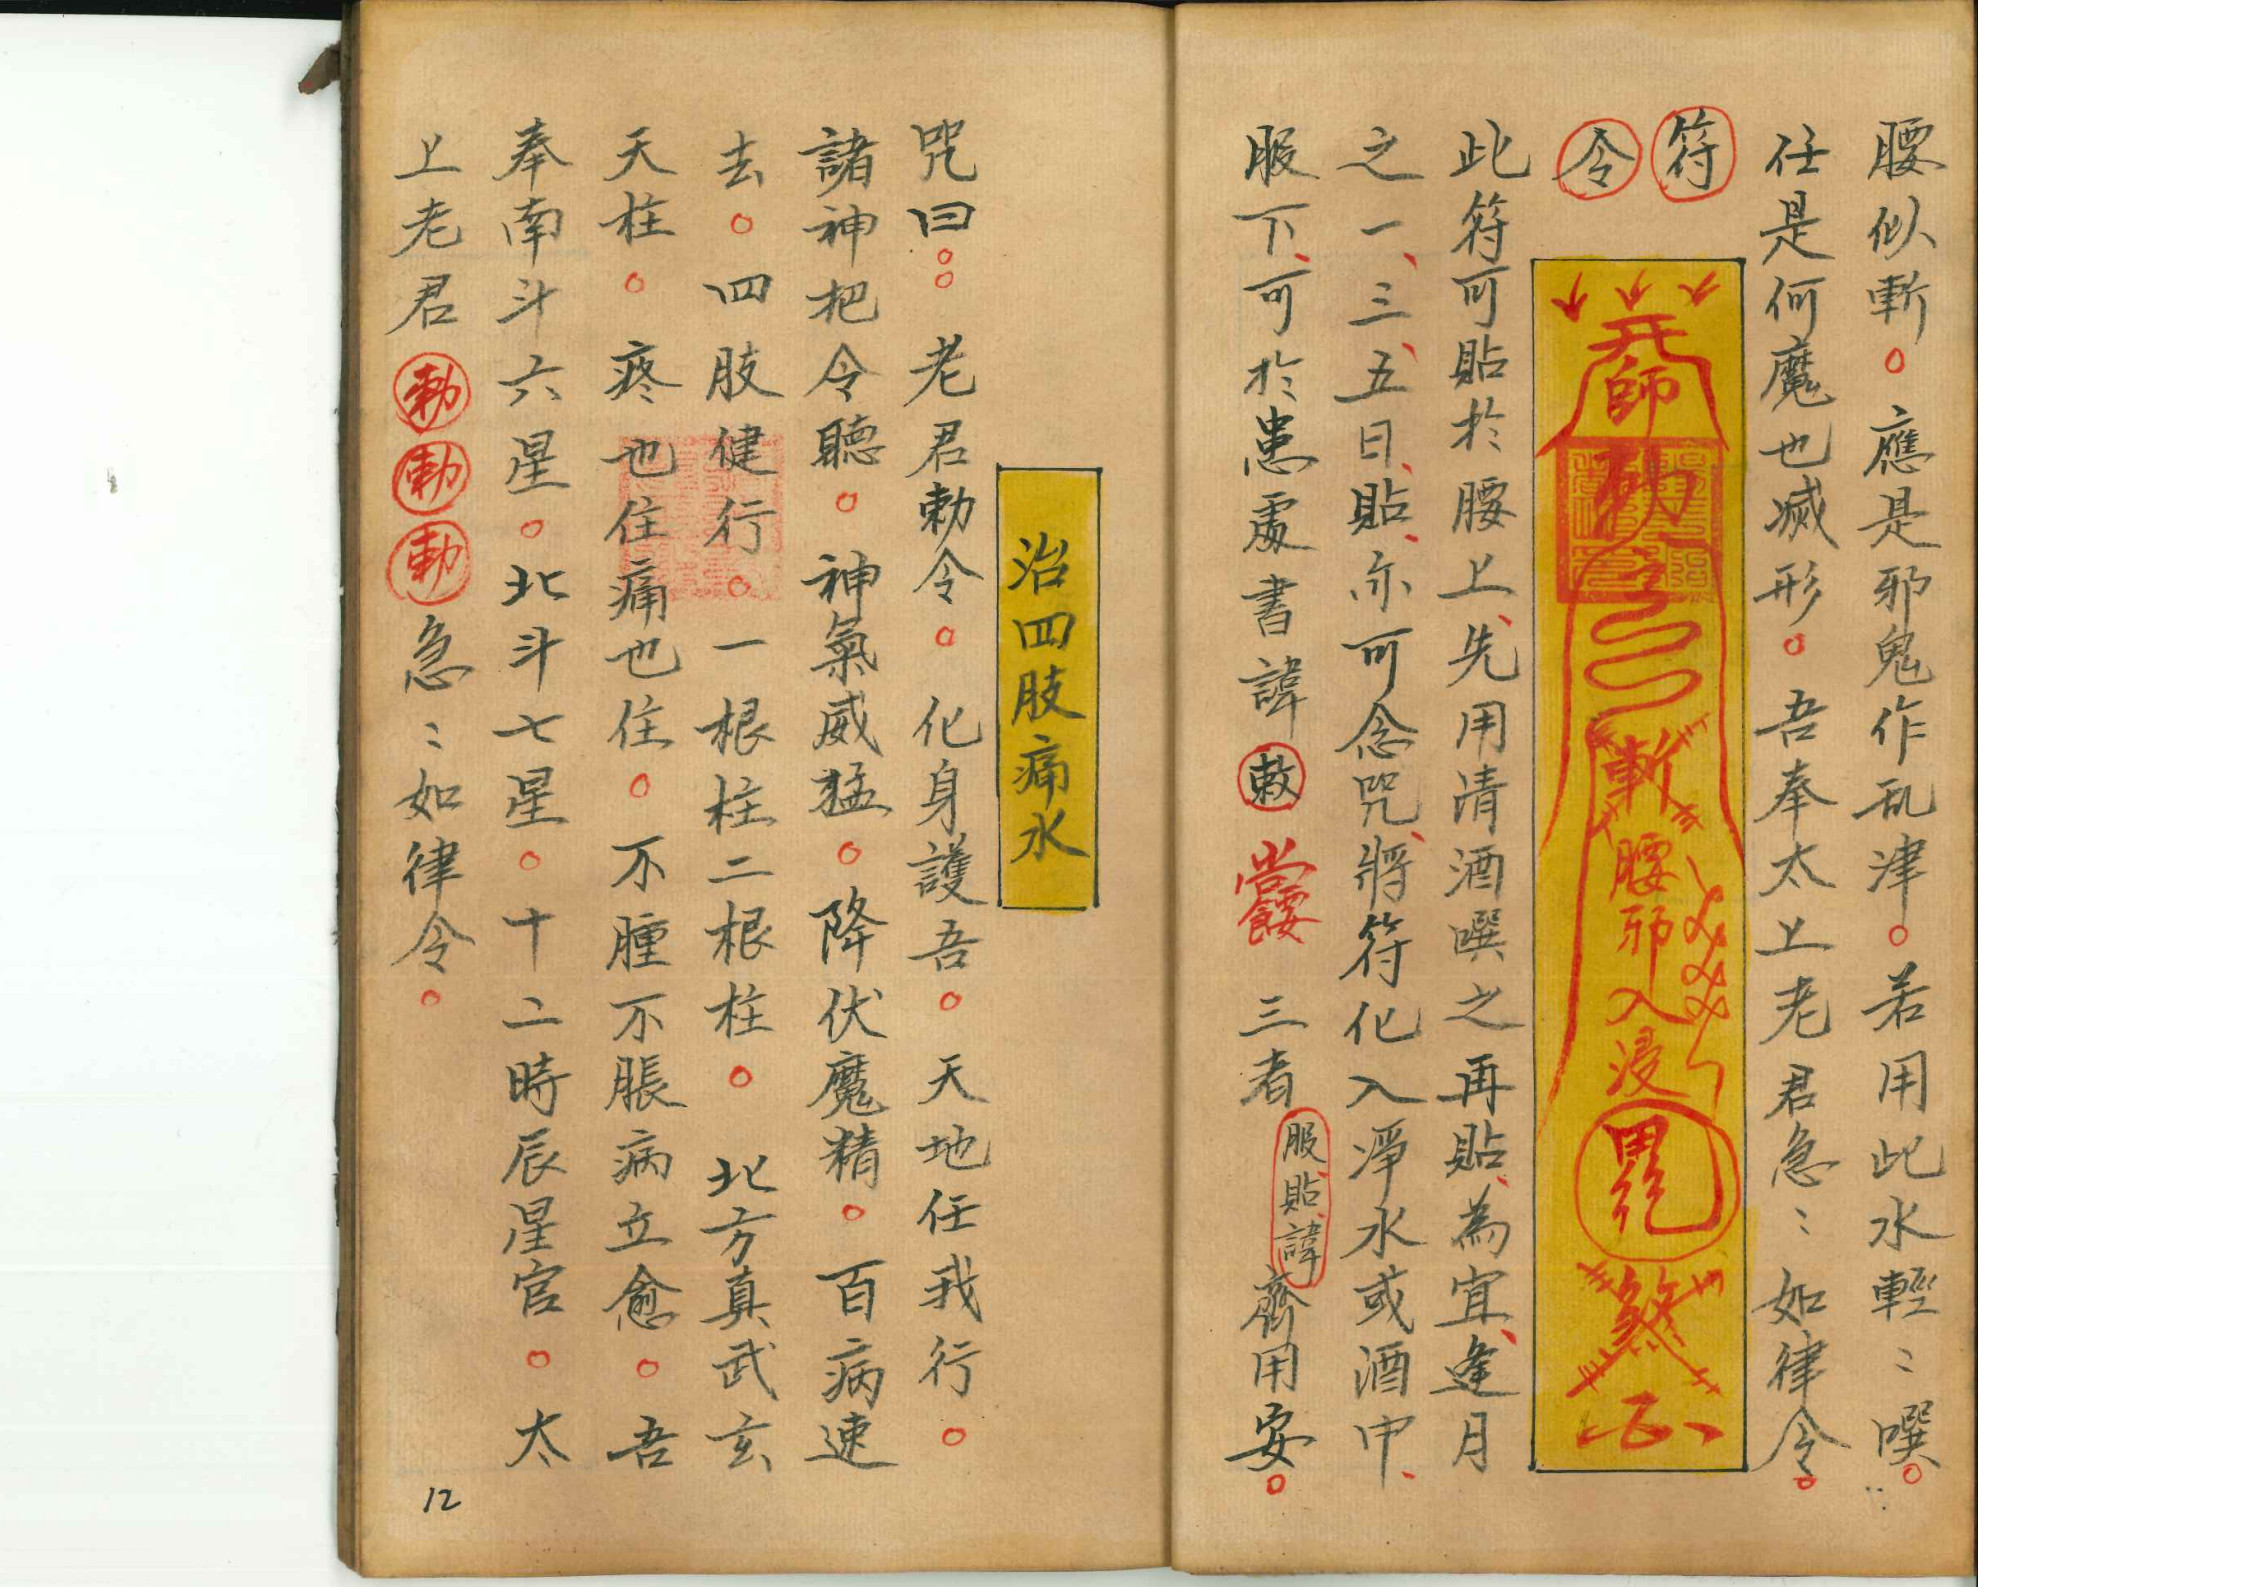 腰似斬。應是邪鬼作乱津。若用此水輕〻噀。
任是何魔也滅形。吾奉太上老君急〻如律令。
符
令
師
斬
腰邪入浸
此符可貼於腰上、先用清酒噀之再貼、為宜、逢月
之一、三、五日、貼、亦可念咒、將符化入淨水或酒中、
服下、可於患處書諱敕 三者服貼諱齊用安。
治四肢痛水
咒曰：老君勅令。化身護吾。天地任我行。
諸神把令聽。神氣威猛。降伏魔精。百病速
去。四肢健行。一根柱二根柱。北方真武玄
天柱。疼也住痛也住。不腫不脹病立愈。吾
奉南斗六星。北斗七星。十二時辰星官。太
上老君勅勅勅急〻如律令。
12